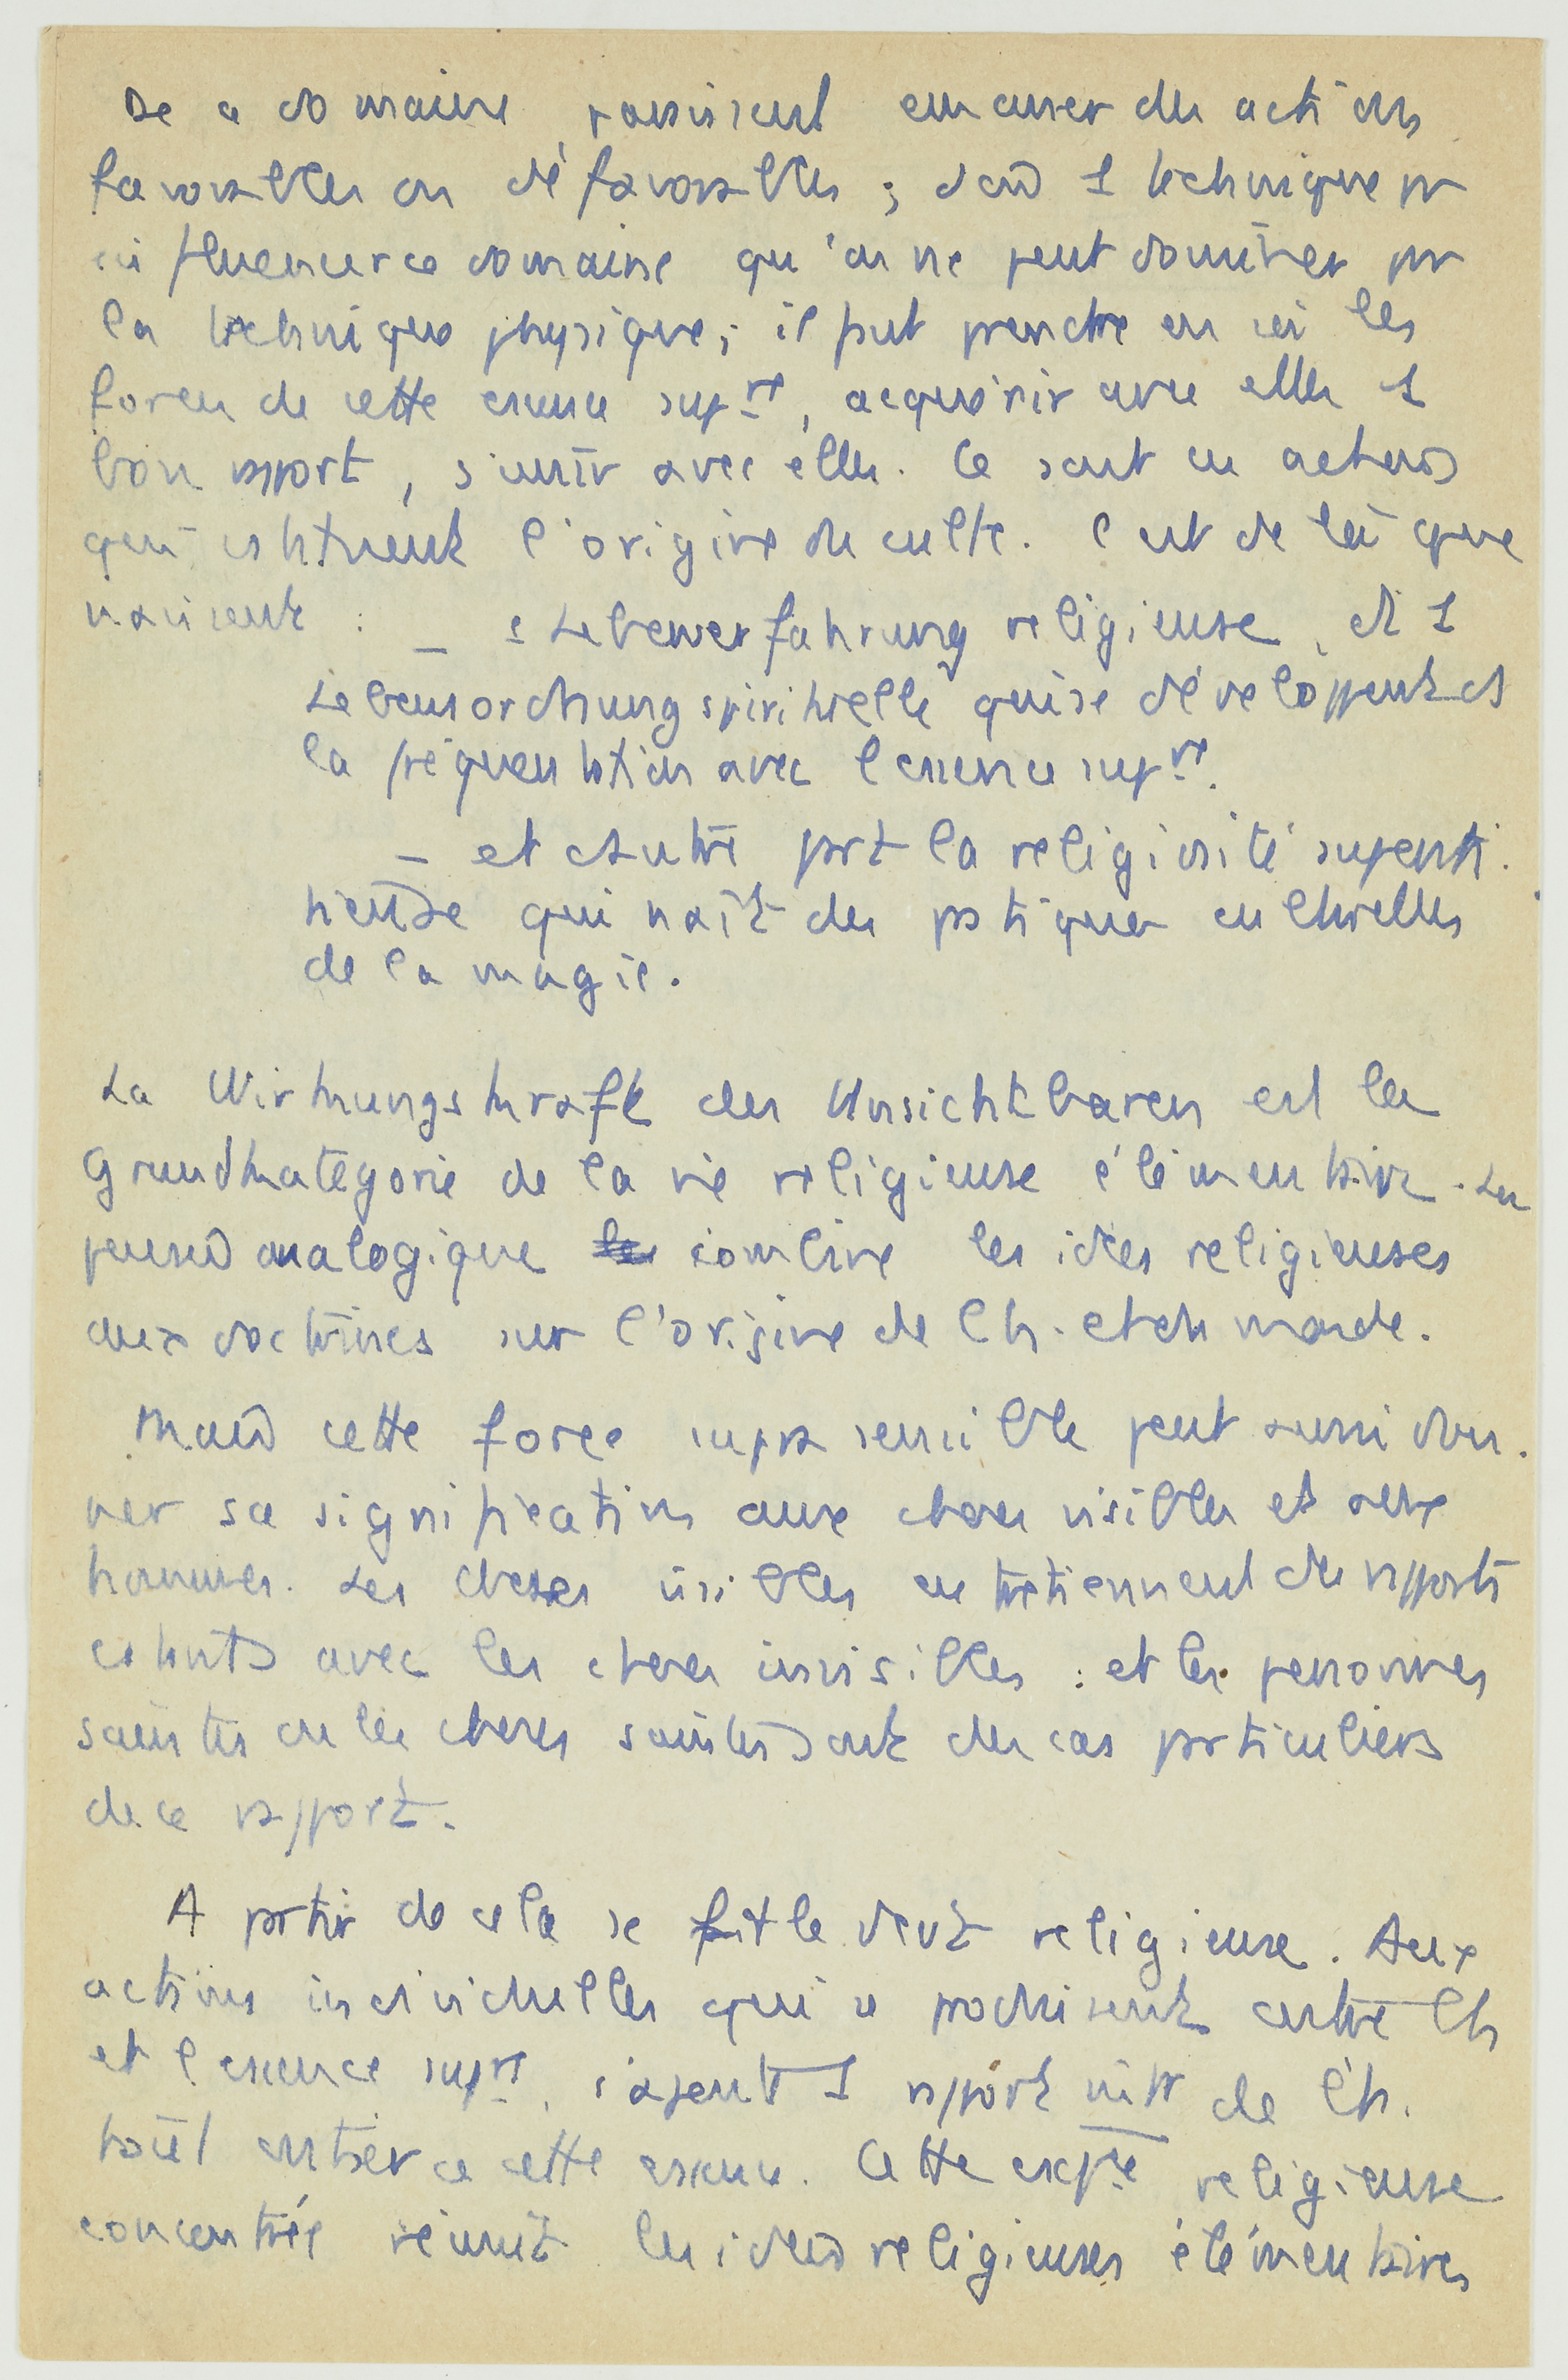 De ce domaine paraissent émaner des actions
favorables ou défavorables ; d'où 1 technique pr
influencer ce domaine qu'on ne peut dominer pr
la technique physique ; il peut prendre en soi les
forces de cette essence supre, acquérir avec elles 1
bon rapport, s'unir avec elles. Ce sont ces actions
qui constituent l'origine du culte. C'est de là que
naissent : – 1 Lebenserfahrung religieuse, et 1
Lebensordnung spirituelle qui se développent ds
la fréquentation avec l'essence supre.
– et d'autre part la religiosité supersti-
tieuse qui naît des pratiques cultuelles
de la magie.
La Wirkungskraft des Unsichtbaren est la
Grundkategorie de la vie religieuse élémentaire. La
pensée analogique combine les idées religieuses
aux doctrines sur l'origine de l'h. et du monde.
Mais cette force suprasensible peut aussi don-
ner sa signification aux choses visibles et aux
hommes. Les choses visibles entretiennent des rapports
constants avec les choses invisibles : et les personnes
saintes ou les choses saintes sont des cas particuliers
de ce rapport.
A partir de cela se fait le devt religieux. Aux
actions individuelles qui se produisent entre l'h
et l'essence supre, s'ajoute 1 rapport intr de l'h.
tout entier à cette essence. Cette expre religieuse
concentrée réunit les idées religieuses élémentaires